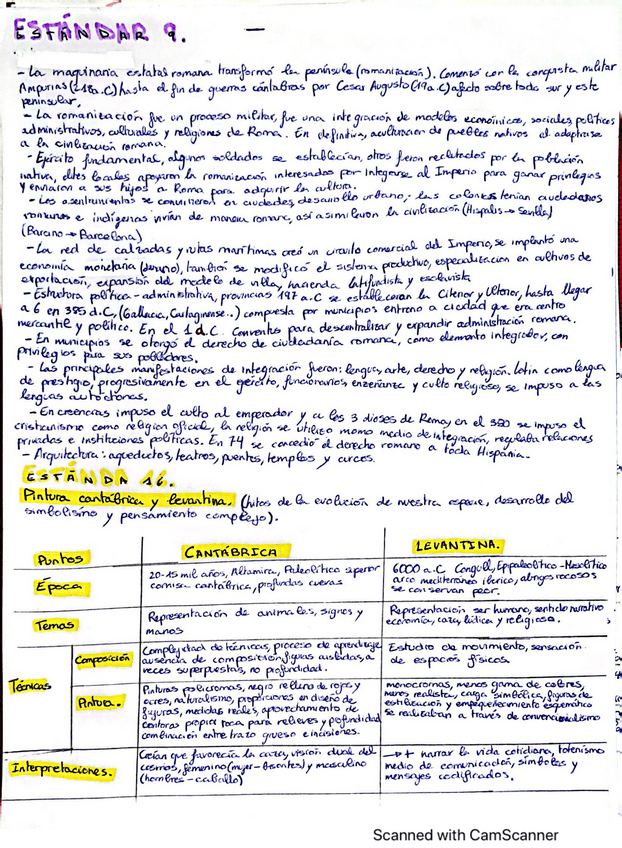 ESTÁNDAR 9.
- La maquinaria estatal romana transformó la península (romanización). Comenzó con la conquista militar
Ampurias (218a.C) hasta el fin de guerras cántabras por Cesar Augusto (19a.C) afectó sobre todo sur y este
peninsular,
- La romanización fue un proceso militar, fue una integración de modelos económicos, sociales, políticos
administrativos, culturales y religiones de Roma. En definitiva, aculturación de pueblos nativos al adaptarse
a la civilización romana.
- Ejército fundamental, algunos soldados se establecían, otros fueron reclutados por la población
nativa, élites locales apoyaron la romanización interesados por integrarse al Imperio para ganar privilegios
y enviaron a sus hijos a Roma para adquirir la cultura.
- Los asentamientos se convirtieron en ciudades, desarrollo urbano, las colonias tenían ciudadanos
romanos e indígenas vivían de manera romana, así asimilaron la civilización (Hispalis → Sevilla)
(Barcino → Barcelona)
- La red de calzadas y rutas marítimas creó un circuito comercial del Imperio, se implantó una
economía monetaria (denario), también se modificó el sistema productivo, especialización en cultivos de
exportación, expansión del modelo de villa, hacienda latifundista y esclavista
- Estructura política - administrativa, provincias 197 a.C se establecieron la Citerior y Ulterior, hasta llegar
a 6 en 385 d.C, (Gallaecia, Cartaginense..) compuesta por municipios entorno a ciudad que era centro
mercantil y político. En el 1 d.C. Conventos para descentralizar y expandir administración romana.
- En municipios se otorgó el derecho de ciudadanía romana, como elemento integrador, con
privilegios para sus pobladores.
- Las principales manifestaciones de integración fueron: lengua, arte, derecho y religión. Latín como lengua
de prestigio, progresivamente en el ejército, funcionarios, enseñanza y culto religioso, se impuso a las
lenguas autóctonas.
- En creencias impuso el culto al emperador y a los 3 dioses de Roma, en el 380 se impuso el
cristianismo como religión oficial, la religión se utilizó como medio de integración, regulaba relaciones
privadas e instituciones políticas. En 74 se concedió el derecho romano a toda Hispania.
- Arquitectura: aqueductos, teatros, puentes, templos y circos.
ESTÁNDA 16.
Pintura cantábrica y levantina. (hitos de la evolución de nuestra especie, desarrollo del
simbolismo y pensamiento complejo).
Puntos
CANTÁBRICA
LEVANTINA.
Época
20-15 mil años, Altamira, Paleolítico superior
cornisa cantábrica, profundas cuevas
6000 a.C Congull, Eppaleolítico - Mesolítico
arco mediterráneo ibérico, abrigos rocosos
se conservan peor.
Temas
Representación de animales, signos y
manos
Representación ser humano, sentido narrativo
economía, caza, lúdica y religiosa.
Técnicas
Composición
Complejidad de técnicas, proceso de aprendizaje
ausencia de composición, figuras aisladas, a
veces superpuestas, no profundidad.
Estudio de movimiento, sensación
de espacios físicos.
Pintura.
Pinturas policromas, negro relleno de rojos y
ocres, naturalismo, proporciones en diseño de
figuras, medidas reales, aprovechamiento de
contornos propia roca para relieves y profundidad
combinación entre trazo grueso e incisiones.
monocromas, menos gama de colores,
menos realista, carga simbólica, figuras de
estilización y empequeñecimiento esquemático
se realizaban a través de convencionalismo
Interpretaciones.
Creían que favorecía la caza, visión dual del
cosmos, femenino (mujer - bisontes) y masculino
(hombres - caballo)
→ + narrar la vida cotidiana, totemismo
medio de comunicación, símbolos y
mensajes codificados.
Scanned with CamScanner